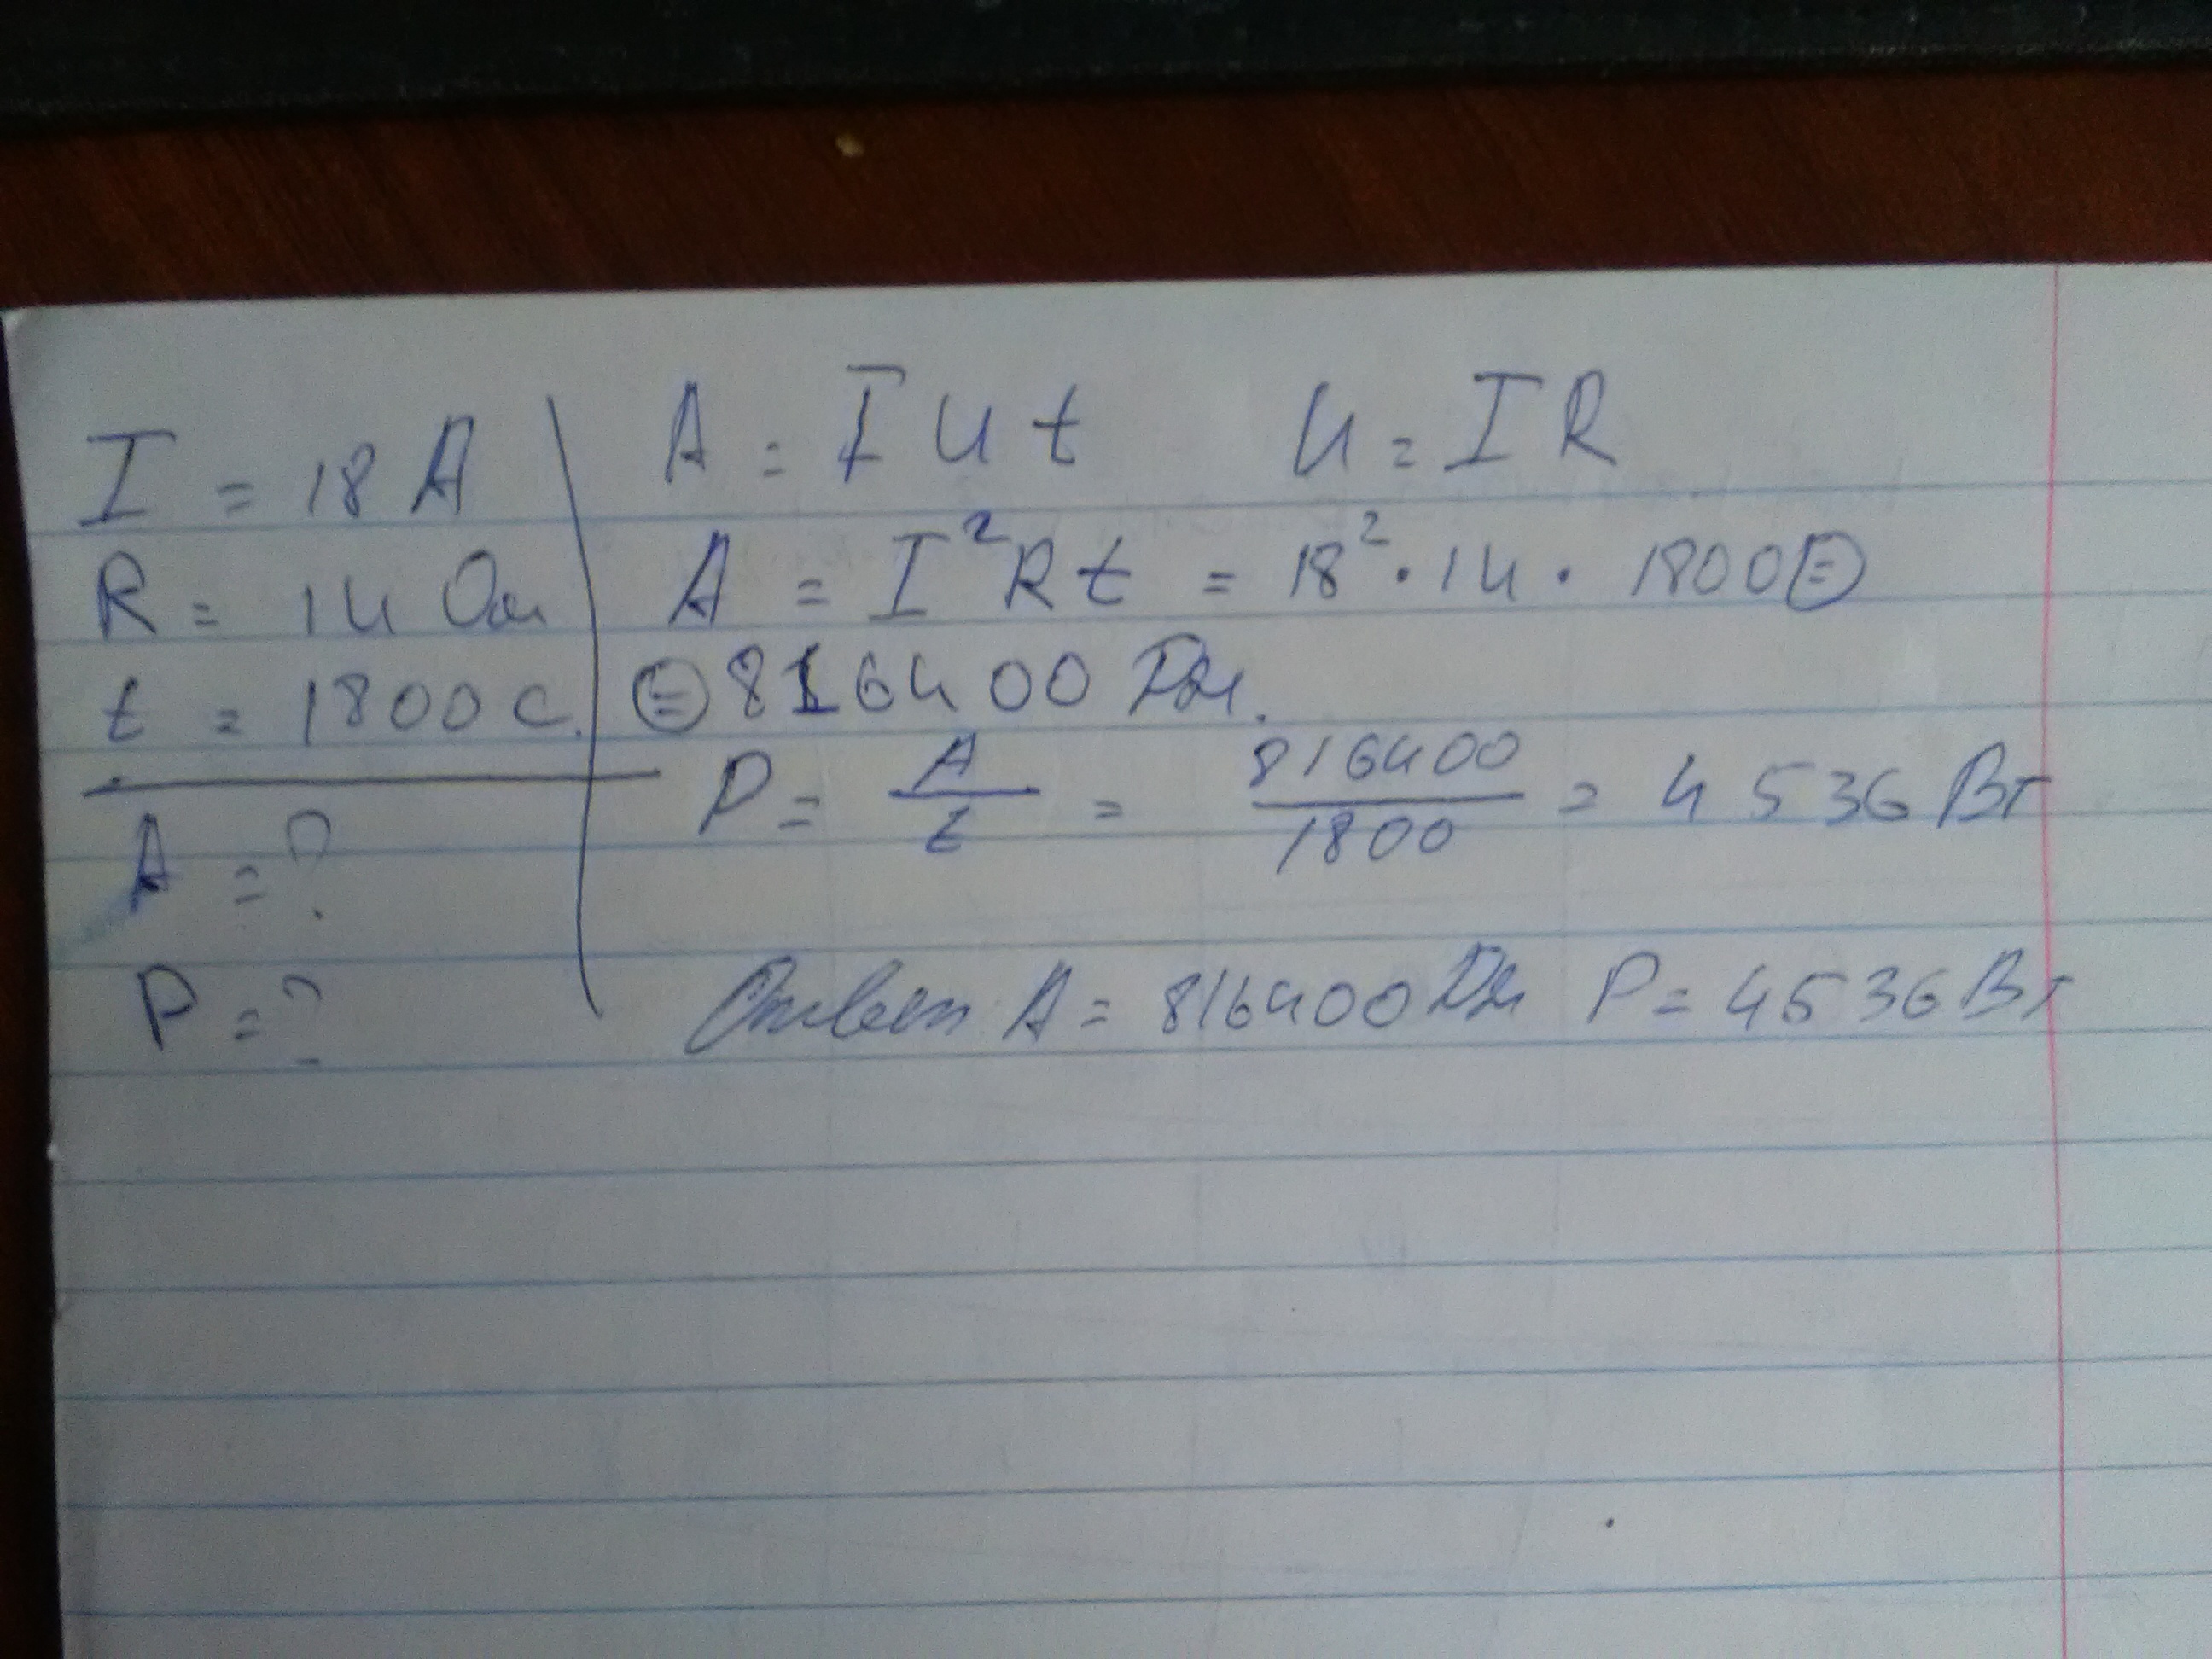 I = 18 A
R = 14 Ом
t = 1800 с.
A = ?
P = ?
A = I U t U = I R
A = I² R t = 18² · 14 · 1800 =
= 816400 Дж.
P = A/t = 816400/1800 = 4536 Вт
Ответ A = 816400 Дж P = 4536 Вт